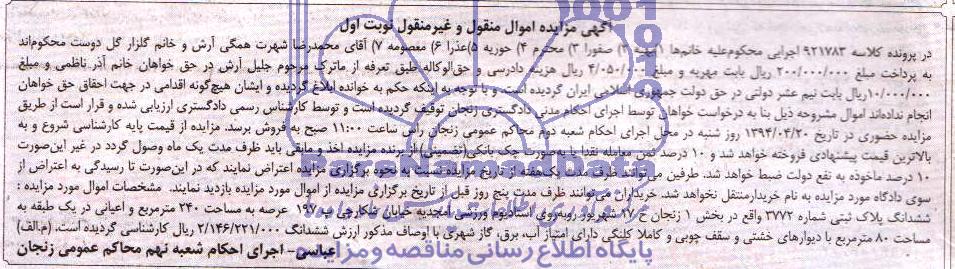 آگهی مزایده اموال منقول و غیرمنقول نوبت اول
در پرونده کلاسه ۹۲۱۷۸۳ اجرایی محکوم‌علیه خانم‌ها ۲) صفورا ۳) محترم ۴) حوریه ۵) عذرا ۶) معصومه ۷) آقای محمدرضا شهرت همگی آرش و خانم گلزار گل دوست محکوم‌اند
به پرداخت مبلغ ۲۰۰/۰۰۰/۰۰۰ ریال بابت مهریه و مبلغ ۴/۰۵۰/۰۰۰ ریال هزینه دادرسی و حق‌الوکاله طبق تعرفه از ماترک مرحوم جلیل آرش در حق خواهان خانم آذر ناظمی و مبلغ
۱۰/۰۰۰/۰۰۰ریال بابت نیم عشر دولتی در حق دولت جمهوری اسلامی ایران گردیده است، و با توجه به اینکه حکم به خوانده ابلاغ گردیده و ایشان هیچ‌گونه اقدامی در جهت احقاق حق خواهان
انجام نداده‌اند اموال مشروحه ذیل بنا به درخواست خواهان توسط اجرای احکام مدنی دادگستری زنجان توقیف گردیده است و توسط کارشناس رسمی دادگستری ارزیابی شده و قرار است از طریق
مزایده حضوری در تاریخ ۱۳۹۴/۰۴/۲۰ روز شنبه در محل اجرای احکام شعبه دوم محاکم عمومی زنجان راس ساعت ۱۱:۰۰ صبح به فروش برسد. مزایده از قیمت پایه کارشناسی شروع و به
بالاترین قیمت پیشنهادی فروخته خواهد شد و ۱۰ درصد ثمن معامله نقدا یا به‌صورت چک بانکی(تضمینی) از برنده مزایده اخذ و مابقی باید ظرف مدت یک ماه وصول گردد در غیر این‌صورت
۱۰ درصد ماخوذه به نفع دولت ضبط خواهد شد. طرفین می‌توانند ظرف مدت یک‌هفته از تاریخ مزایده نسبت به نحوه برگزاری مزایده اعتراض نمایند که در این‌صورت تا رسیدگی به اعتراض از
سوی دادگاه مورد مزایده به نام خریدارمنتقل نخواهد شد. خریداران می‌توانند ظرف مدت پنج روز قبل از تاریخ برگزاری مزایده از اموال مورد مزایده بازدید نمایند. مشخصات اموال مورد مزایده :
ششدانگ پلاک ثبتی شماره ۳۷۷۲ واقع در بخش ۱ زنجان خ ۱۷ شهریور روبه‌روی استادیوم ورزشی امجدیه خیابان شکارچی پ ۱۹۷ عرصه به مساحت ۲۴۰ مترمربع و اعیانی در یک طبقه به
مساحت ۸۰ مترمربع با دیوارهای خشتی و سقف چوبی و کاملا کلنگی دارای امتیاز آب، برق، گاز شهری با اوصاف مذکور ارزش ششدانگ ۲/۱۴۶/۲۲۱/۰۰۰ ریال کارشناسی گردیده است. (م.الف)
عباسی- اجرای احکام شعبه نهم محاکم عمومی زنجان
ParsNamadData
پایگاه اطلاع رسانی مناقصه و مزایده